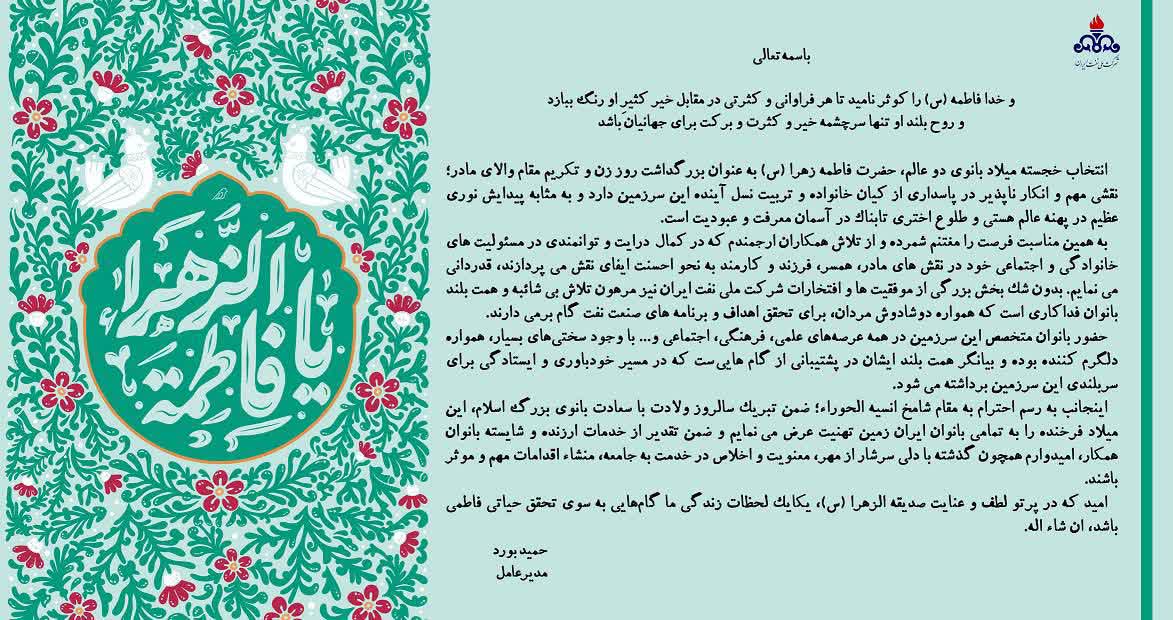 شرکت ملی نفت ایران
باسمه تعالی
و خدا فاطمه (س) را کوثر نامید تا هر فراوانی و کثرتی در مقابل خیر کثیرِ او رنگ ببازد
و روح بلند او تنها سرچشمه خیر و کثرت و برکت برای جهانیان باشد
انتخاب خجسته میلاد بانوی دو عالم، حضرت فاطمه زهرا (س) به عنوان بزرگداشت روز زن و تکریم مقام والای مادر؛
نقشی مهم و انکار ناپذیر در پاسداری از کیان خانواده و تربیت نسل آینده این سرزمین دارد و به مثابه پیدایش نوری
عظیم در پهنه عالم هستی و طلوع اختری تابناک در آسمان معرفت و عبودیت است.
به همین مناسبت فرصت را مغتنم شمرده و از تلاش همکاران ارجمندم که در کمال درایت و توانمندی در مسئولیت های
خانوادگی و اجتماعی خود در نقش های مادر، همسر، فرزند و کارمند به نحو احسنت ایفای نقش می پردازند، قدردانی
می نمایم. بدون شك بخش بزرگی از موفقیت ها و افتخارات شرکت ملی نفت ایران نیز مرهون تلاش بی شائبه و همت بلند
بانوان فداکاری است که همواره دوشادوش مردان، برای تحقق اهداف و برنامه های صنعت نفت گام برمی دارند.
حضور بانوان متخصص این سرزمین در همه عرصه‌های علمی، فرهنگی، اجتماعی و... با وجود سختی‌های بسیار، همواره
دلگرم کننده بوده و بیانگر همت بلند ایشان در پشتیبانی از گام هایی‌ست که در مسیر خودباوری و ایستادگی برای
سربلندی این سرزمین برداشته می شود.
اینجانب به رسم احترام به مقام شامخ انسیه الحوراء؛ ضمن تبریك سالروز ولادت با سعادت بانوی بزرگ اسلام، این
میلاد فرخنده را به تمامی بانوان ایران زمین تهنیت عرض می نمایم و ضمن تقدیر از خدمات ارزنده و شایسته بانوان
همکار، امیدوارم همچون گذشته با دلی سرشار از مهر، معنویت و اخلاص در خدمت به جامعه، منشاء اقدامات مهم و موثر
باشند.
امید که در پرتو لطف و عنایت صدیقه الزهرا (س)، یکایك لحظات زندگی ما گام‌هایی به سوی تحقق حیاتی فاطمی
باشد، ان شاء اله.
حمید بورد
مدیرعامل
یا فاطمة الزهراء